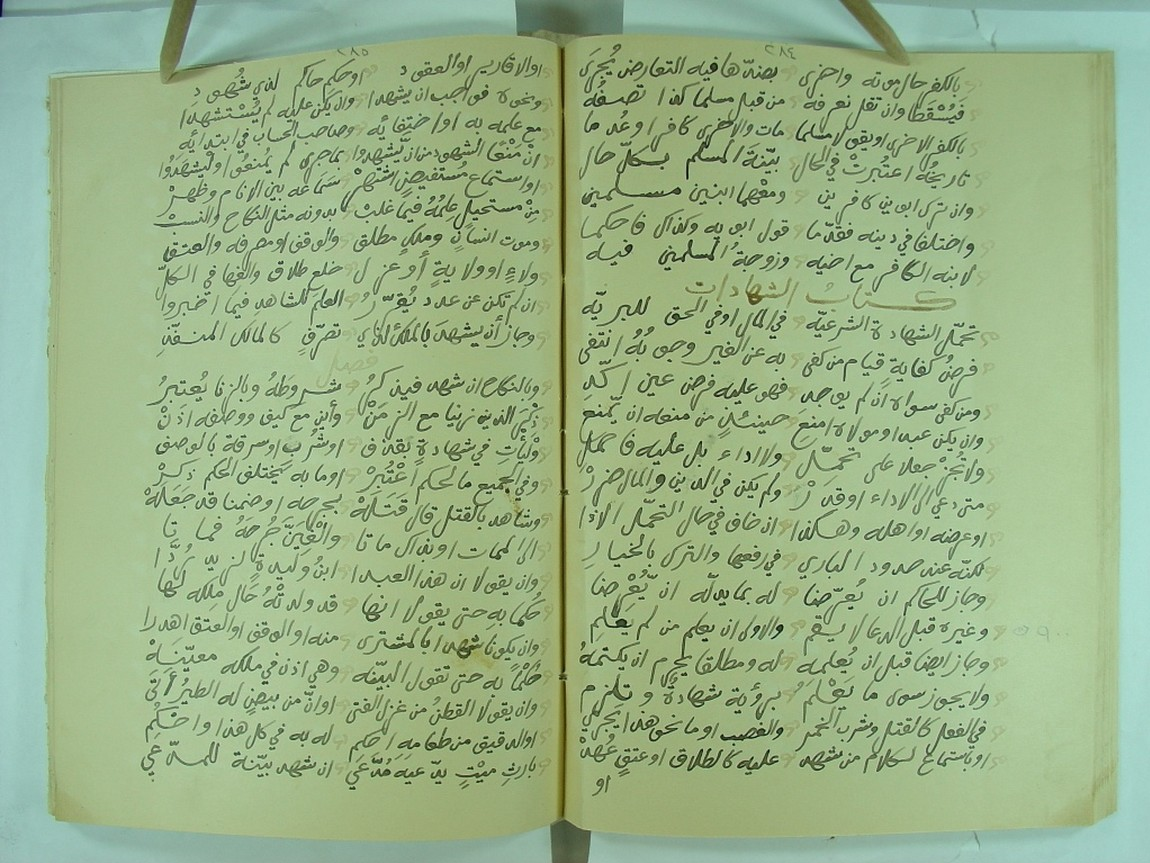 ٢٨٤
بالكفر حال موته واخرى بضدها فيه التعارض يُجرَى
فيُسْقَطا وان تقل نعرفه من قبل مسلما كذا تصفُه
بالكفر الاخرى او يقولا مسلما مات والاخرى كافرا وعُدما
تاريخُه اعتُبرتْ في الحال بيّنةُ المسلم بكلّ حال
وان ترك ابوين كافرين ومعْهما ابنين مسلمين
واختلفا في دينه فقدّما قول ابويه وكذاك فاحكما
لابنه الكافر مع اخيه وزوجةُ المسلمين فيه
كتابُ الشهادات
تحمّل الشهادة الشرعيّه في المال او في الحق للبريّه
فرضُ كفاية قيام من كفى به عن الغير وجوبُهُ انتفى
ومن كفى سواه ان لم يوجد فهو عليه فرض عين اكّد
وان يكن عبدا ومولاه امنع حينئذٍ من منعه ان يمنع
ولا تُجزْ جعلا على تحمّل ولا اداء بل عليه فاحمل
متى دعي الى الاداء او قدرْ ولم يكن في الدين والمال ضررْ
او عرضه او اهله وهكذا ان خاف في حال التحمّل الاذا
لكنّه عند حدود الباري في رفعها والترك بالخيار
وجاز للحاكم ان يُعرّضا له بما يدلّه ان يُعْرضا
وغيره قبل الدعا لا يقم والاولى ان يعلم من لم يعلم
وجاز ايضا قبل ان يُعلمه له ومطلقا يحرم ان يكتمهُ
ولا يجوز سوى ما يَعْلَمُ برؤية شهادةٌ وتلزم
في الفعل كالقتل وشرب الخمر والغصب او ما نحو هذا يجري
او باستماعٍ لكلام من شهد عليه كالطلاق او عتقٍ عُهدْ
او
٢٨٥
او الاقارير او العقود او حكم حاكم لذي شُهود
ونحوه فواجب ان يشهدا وان يكن عليه لم يُسْتشهدا
مع علمه به او اختفائه وصاحب الحساب في ابتدائه
انْ مَنَعَا الشهود من ان يشهدوا بما جرى لم يُمنعوا وليشهدُوا
او استماعِ مُستفيضٍ اشتهرْ سَمَاعه بين الانام وظهرْ
مِنْ مستحيلٍ عِلمُهُ فيما غلبْ بدونه مثل النكاح والنسبْ
وموت انسانٍ وملكٍ مطلق والوقف ومصرفه والعتق
ولاءٍ او ولايةٍ أو عزل خلعٍ طلاق والغها في الكلّ
ان لم تكن عن عدد يُقرّرُ العلم للشاهد فيما اخبروا
وجاز أن يشهد بالملك لذي تصرّفٍ كالمالك المنفّذ
فصل
وبالنكاح ان شهد فيذكرُ شروطَهُ وبالزنا يُعتبرُ
ذكرُ الذين زنيا مع الزمنْ وأين مع كيف ووصفه اذنْ
ولْيأتِ في شهادةٍ بقذف او شُرب او سرقة بالوصف
وفي الجميع ما لحكم اعتُبرْ اوما به يختلف الحكم ذكرْ
وشاهد بالقتل قال قَتَلَهْ بجرحه او ضمنا قد جعلَهْ
الى الممات او بذاك ماتا والْغِيَنَّ جُرحَهُ فماتا
وان يقولا ان هذا العبدا ابنُ وليدةٍ لزيد يُردّا
حُكما به حتى يقولا انها قد ولدتْهُ حال ملكه لها
وان يكونا شهدا بالمشترى منه او الوقف او العتق اهدرا
حُكماً به حتى تقول البيّنه وهي اذن في ملكه معيّنه
وان يقولا القطنُ من غزل الفتى او انّ من بيضٍ له الطيرُ أتى
او الدقيق من طعامه احكم له به في كل هذا واحكم
بارثِ ميْتٍ يدّعيه مُدّعي ان شهد بيّنة للمدّعي